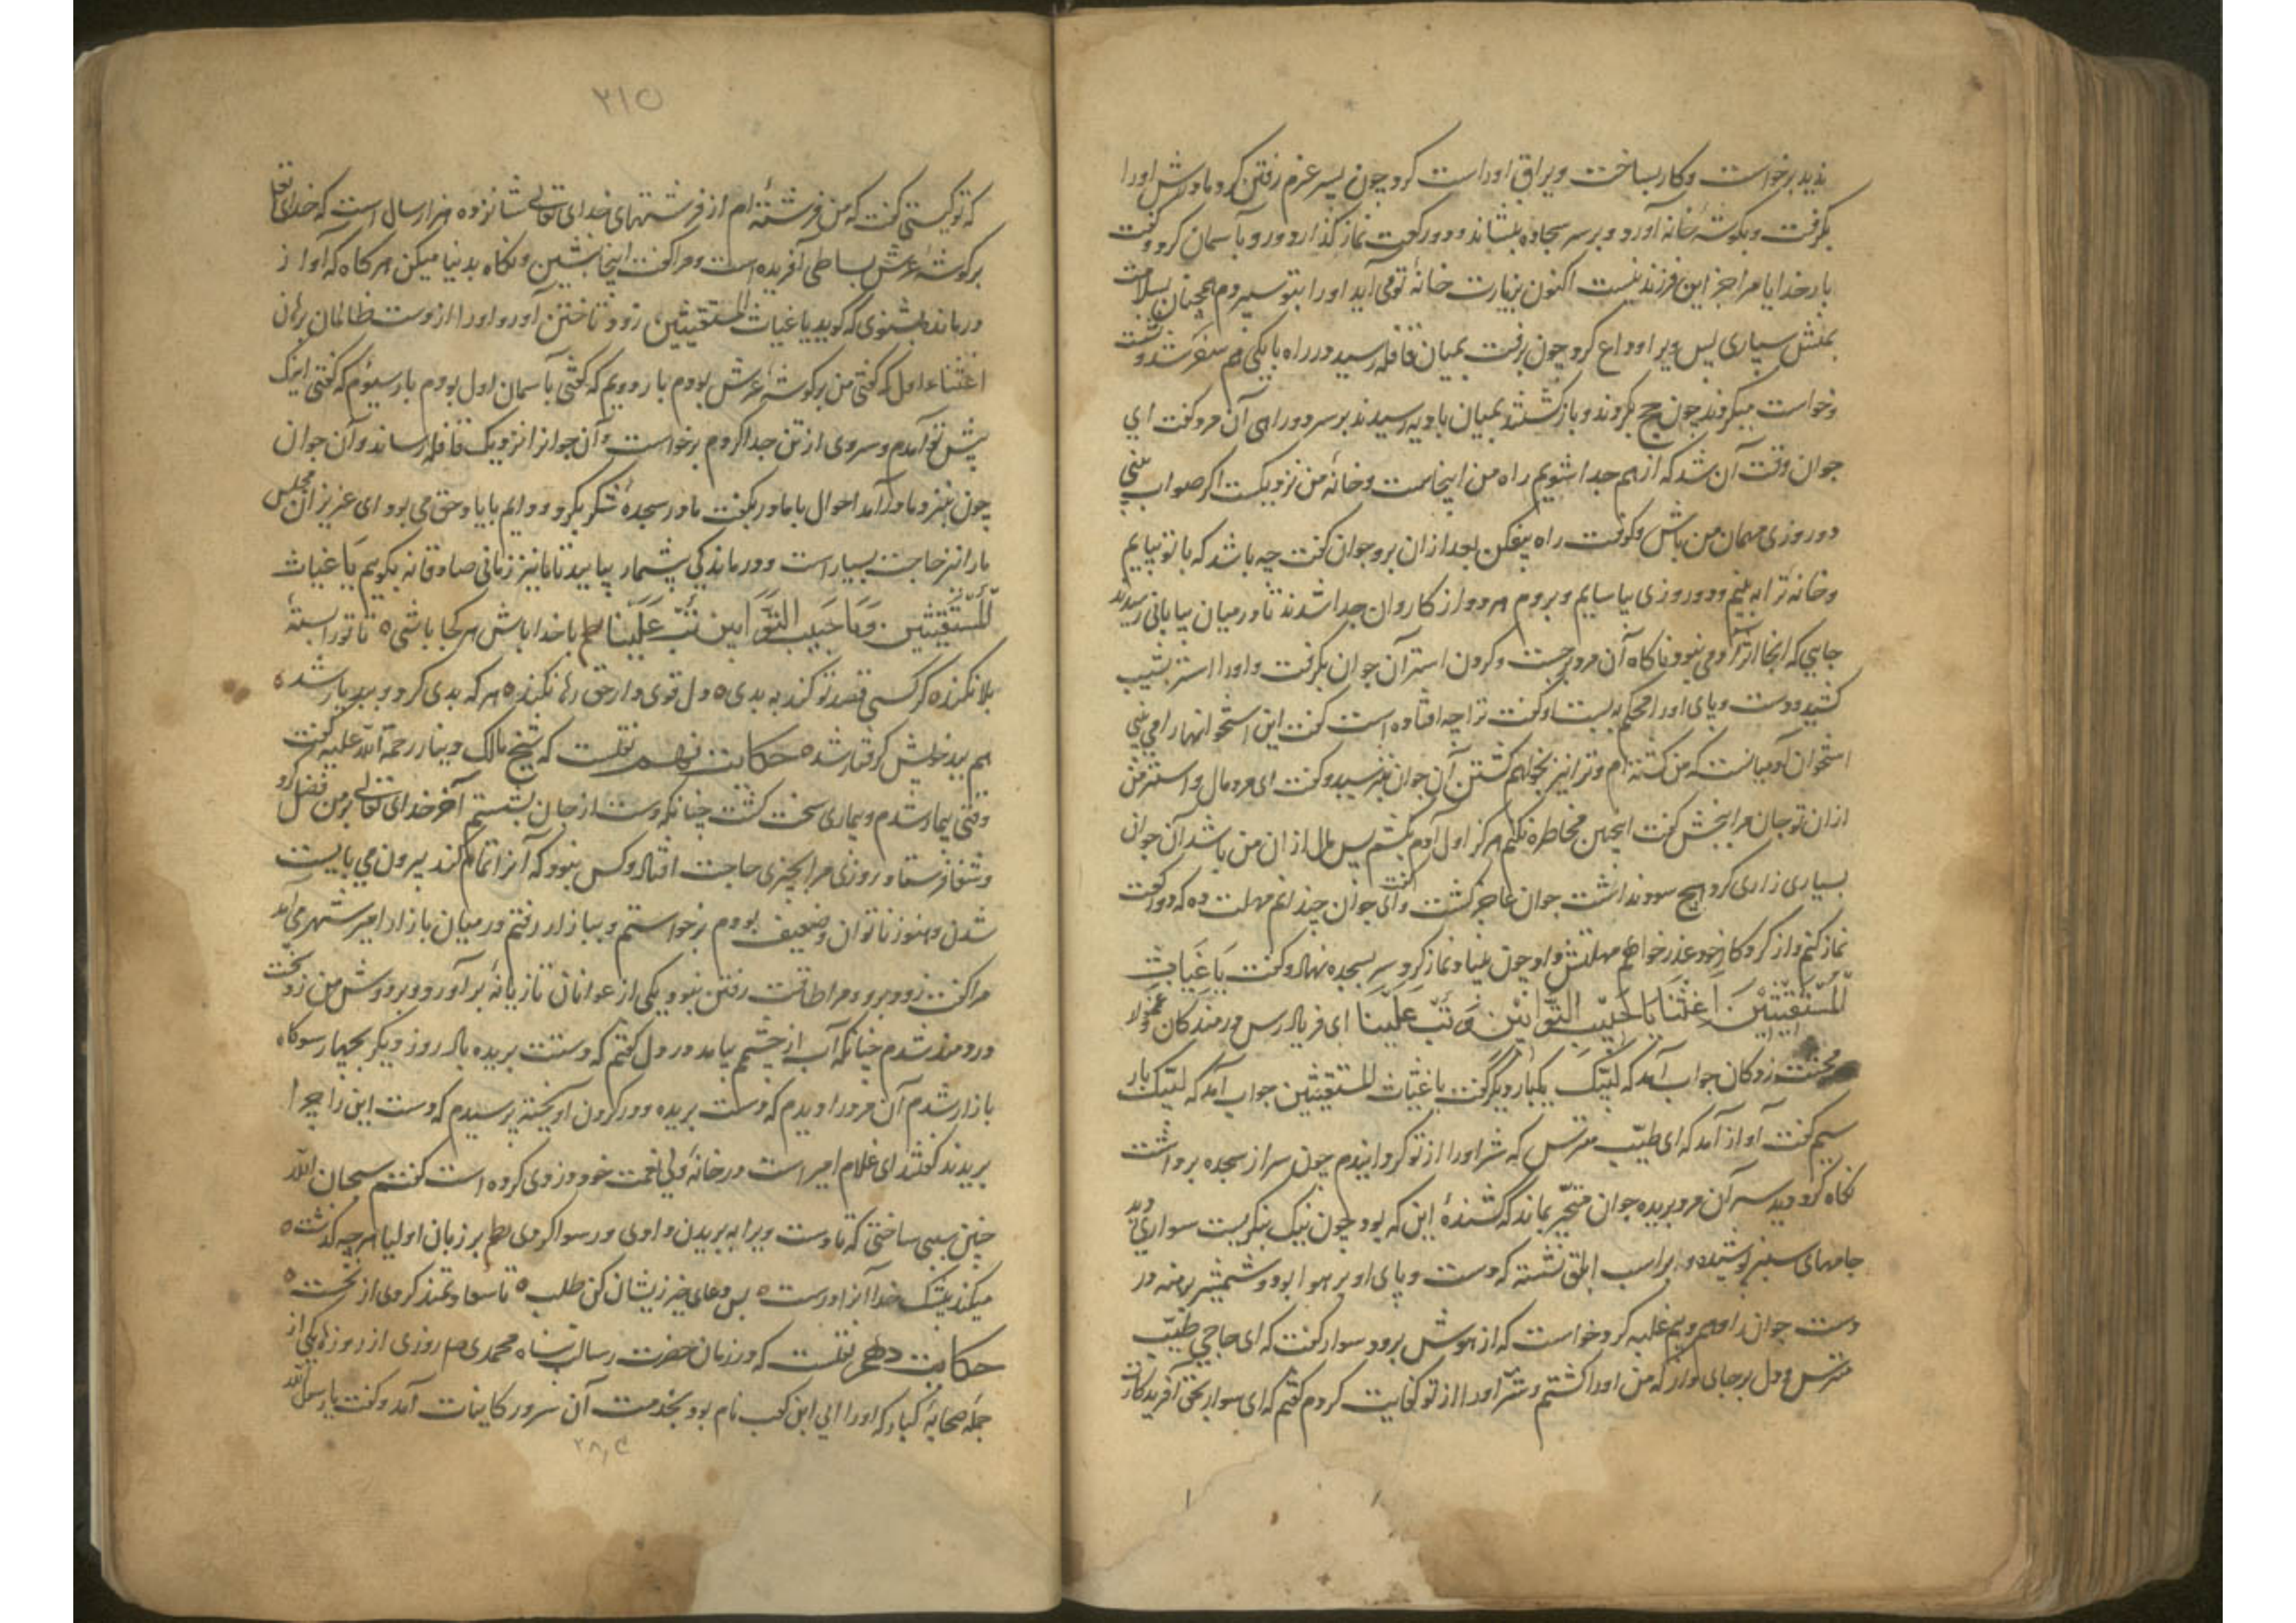 پذید برخواست و کار بساخت و یراق او راست کرد چون پسر عزم رفتن کرد مادرش او را
بگرفت و بگوشهٔ خانه آورد و بر سر سجاده بنشاند و دو رکعت نماز گذارد و رو بآسمان کرد و گفت
بار خدایا مرا جز این فرزند نیست اکنون بزیارت خانهٔ تو می آید او را بتو سپردم همچنان بسلامت
بمنش سپاری پس ویرا وداع کرد چون برفت بمیان قافله رسید در راه با یکی هم سفر شد و نشست
و خواست میکردند چون حج بکردند و باز گشتند بمیان بادیه رسیدند بر سر دو راهی آن مرد گفت ای
جوان وقت آن شد که از هم جدا شویم راه من اینجاست و خانهٔ من نزدیکست اگر صواب بینی
دو روزی مهمان من باش و کوفت راه بیفکن بعد از ان برو جوان گفت چه باشد که با تو بیایم
و خانهٔ ترا به بینم و دو روزی بیاسایم و بروم هر دو از کاروان جدا شدند تا در میان بیابانی رسیدند
جایی که آنجا اثر آدمی نبود ناگاه آن مرد بجست و گردن استر آن جوان بگرفت و او را از استر بشیب
کشید و دست و پای او را محکم به بست او گفت ترا چه افتاده است گفت این استخوانها را می بینی
استخوان آدمیانست که من کشته ام و ترا نیز بخواهم کشتن آن جوان بترسید و گفت ای مرد مال و استر من
از ان تو جان مرا ببخش گفت اینچنین مخاطره نکنم هرگز اول آدم بکشم پس مال از ان من باشد آن جوان
بسیاری زاری کرد هیچ سود نداشت جوان عاجز گشت گفت ای جوان چندانم مهلت ده که دو رکعت
نماز کنم و از کردگار خود عذر خواهم مهلتش داد چون بنیاد نماز کرد سر بسجده نهاد و گفت یا غیاث
المستغیثین اغثنا یا حبیب التوابین و تب علینا ای فریاد رس درمندگان
محنت زدگان جواب آمد که لبیک یکبار دیگر گفت یا غیاث المستغیثین جواب آمد که لبیک بار
سیم گفت آواز آمد که ای طیب مترس که شر او را از تو گردانیدم چون سر از سجده برداشت
نگاه کرد دید سر آن مرد بریده جوان متحیر بماند که کشندهٔ این که بود چون نیک بنگریست سواری دید
جامهای سبز پوشیده و بر اسب ابلق نشسته که دست و پای او بر هوا بود و شمشیر برهنه در
دست جوان را وهم و بیم غلبه کرد خواست که از هوش برود سوار گفت که ای حاجی طیب
مترس و دل بر جای دار که من او را کشتم و شر او را از تو کفایت کردم گفتم که ای سوار بحق آفریدگارت
۲۱۵
که تو کیستی گفت که من فرشته ام از فرشتهای خدای تعالی شانزده هزار سال است که خدای تعا
بر گوشهٔ عرش بساطی آفریده است و مرا گفت اینجا بنشین و نگاه بدنیا میکن هر گاه که آواز
درمانده بشنوی که گوید یا غیاث المستغیثین زود تاختن آور و او را از دست ظالمان برهان
اغثنا اول که گفتی من بر گوشهٔ عرش بودم بار دویم که گفتی بآسمان اول بودم بار سیوم که گفتی اینک
پیش تو آمدم و سر وی از تن جدا کردم برخواست و آن جوانرا نزدیک قافله رساند و آن جوان
چون بنزد مادر آمد احوال با مادر بگفت مادر سجدهٔ شکر بکرد و دایم با یاد حق می بود ای عزیزان مجلس
ما را نیز حاجت بسیار است و درماندگی بیشمار بیایید تا ما نیز زمانی صادقانه بگوییم یا غیاث
المستغیثین و یا حبیب التوابین تب علینا نظم با خدا باش هر کجا باشی ه تا تو را بستهٔ
بلا نکند ه گر کسی قصد تو کند به بدی ه دل قوی دار حق رها نکند ه هر که بدی کرد و ببد یار شد ه
هم ببد خویش گرفتار شد ه حکایت نهم نقلست که شیخ مالک دینار رحمة الله علیه گفت
وقتی بیمار شدم و بیماری سخت گشت چنانکه دست از جان بشستم آخر خدای تعالی بر من فضل کرد
و شفا فرستاد روزی مرا بچیزی حاجت افتاد و کس نبود که آنرا تمام کند بیرون می بایست
شدن و هنوز ناتوان و ضعیف بودم برخواستم و ببازار رفتم در میان بازار امیر شهر می آمد
مرا گفت زود برو و مرا طاقت رفتن نبود یکی از عوانان تازیانهٔ بر آورد و بر دوش من زد سخت
دردمند شدم چنانکه آب از چشمم بیامد در دل گفتم که دستت بریده باد روز دیگر بچهار سوگاه
بازار شدم آن مرد را دیدم که دست بریده و در گردن آویخته پرسیدم که دست این را چرا
بریدند گفتند ای غلام امیر است در خانهٔ ولی نعمت خود دزدی کرده است گفتم سبحان الله
چنین سببی ساختی که تا دست ویرا به بریدن دادی و رسوا کردی نظم بر زبان اولیا هر چه گذشت ه
میکند بیشک خدا آنرا درست ه پس دعای خیر زیشان کن طلب ه تا سعادتمند گردی از نخست ه
حکایت دهم نقلست که در زمان حضرت رسالت پناه محمدی صم روزی از روزها یکی از
جمله صحابهٔ کبار که او را ابی ابن کعب نام بود بخدمت آن سرور کاینات آمد و گفت یا رسول الله